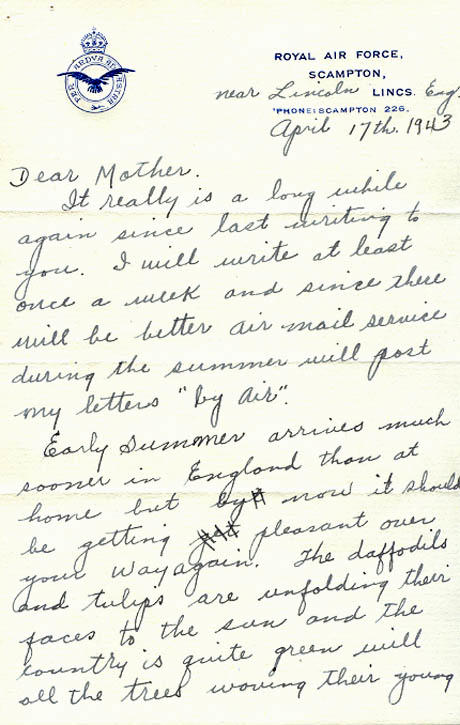 PER ARDVA AD ASTRA
ROYAL AIR FORCE,
SCAMPTON,
near Lincoln LINCS. Eng.
'PHONE: SCAMPTON 226.
April 17th. 1943
Dear Mother.
It really is a long while
again since last writing to
you. I will write at least
once a week and since there
will be better air mail service
during the summer will post
my letters "by Air".
Early Summer arrives much
sooner in England than at
home but by now it should
be getting pleasant over
your way again. The daffodils
and tulips are unfolding their
faces to the sun and the
country is quite green will
all the trees waving their young